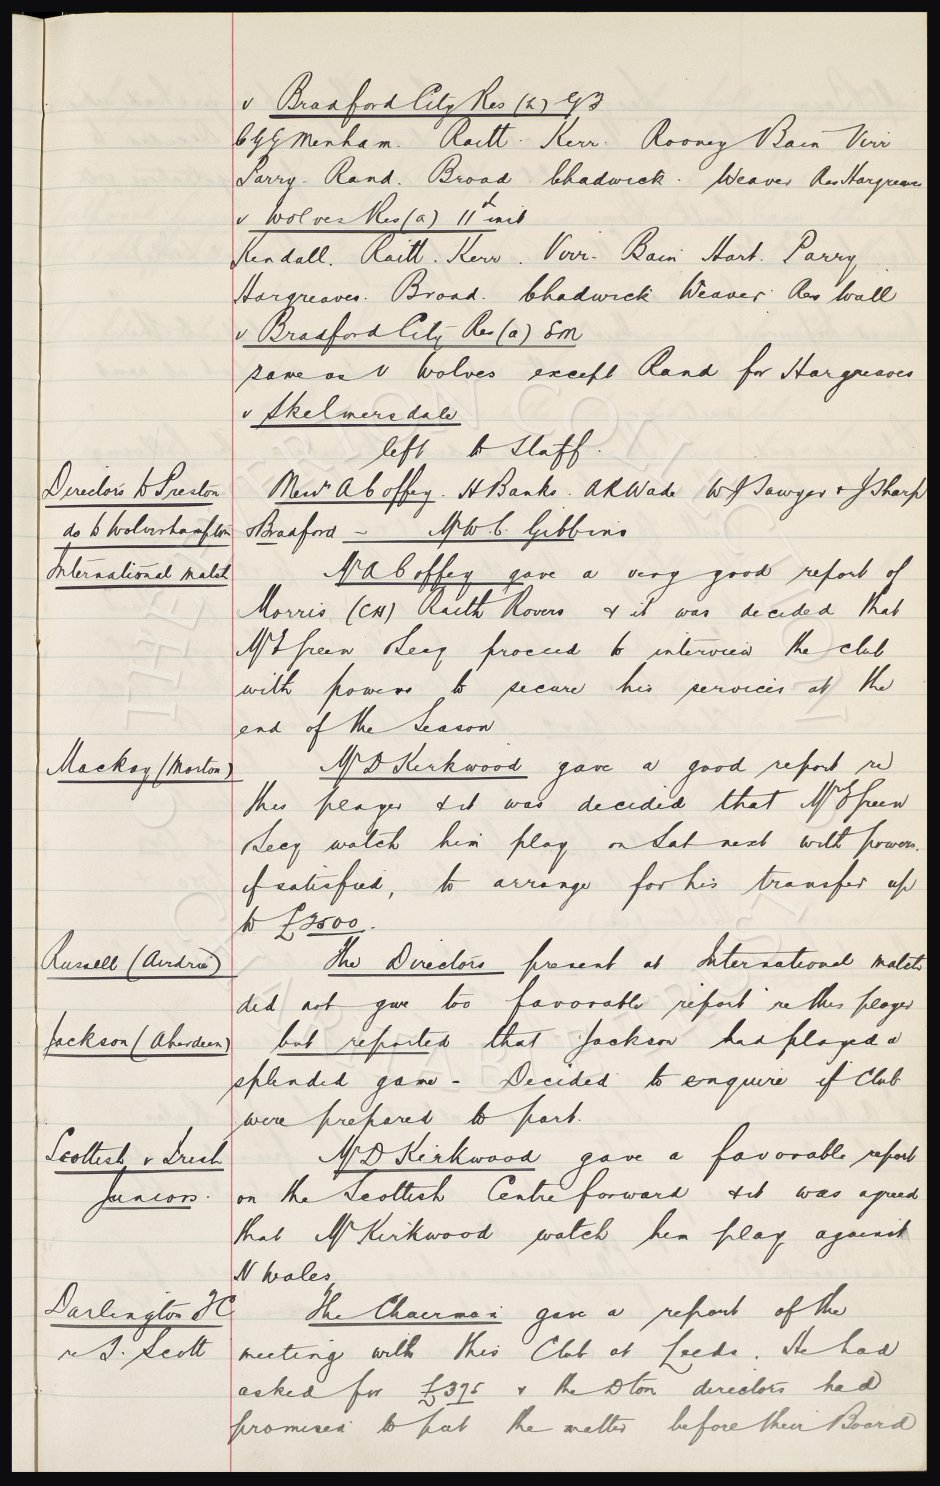 v Bradford City Res (L) G.3
C G G Menham. Raitt. Kerr. Rooney Bain Virr
Parry. Rand. Broad Chadwick. Weaver Res Hargreaves
v Wolves Res (a) 11th inst
Kendall. Raitt. Kerr. Virr. Bain Hart. Parry
Hargreaves. Broad. Chadwick Weaver Res Wall
v Bradford City Res (a)
same as v Wolves except Rand for Hargreaves
v Skelmersdale
left to Staff.
Directors to Preston Messrs A Coffey. H Banks. A R Wade W J Sawyer & J Sharp
do to Wolverhampton & Bradford - Mr W. C. Gibbins
International match Mr A Coffey gave a very good report of
Morris (CH) Raith Rovers & it was decided that
Mr E Green Secy proceed to interview the club
with powers to secure his services at the
end of the Season
Mackay (Morton) Mr D Kirkwood gave a good report re
this player & it was decided that Mr E Green
Secy watch him play on Sat next with powers.
if satisfied, to arrange for his transfer up
to £2500.
Russell (Airdrie) The Directors present at International match
did not give too favorable report re this player
Jackson (Aberdeen) but reported that Jackson had played a
splendid game - Decided to enquire if Club
were prepared to part.
Scottish v Irish Mr D Kirkwood gave a favorable report
Juniors. on the Scottish Centre forward & it was agreed
that Mr Kirkwood watch him play against
N Wales
Darlington FC The Chairman gave a report of the
re J. Scott meeting with this Club at Leeds. He had
asked for £375 & the Dton directors had
promised to put the matter before their Board